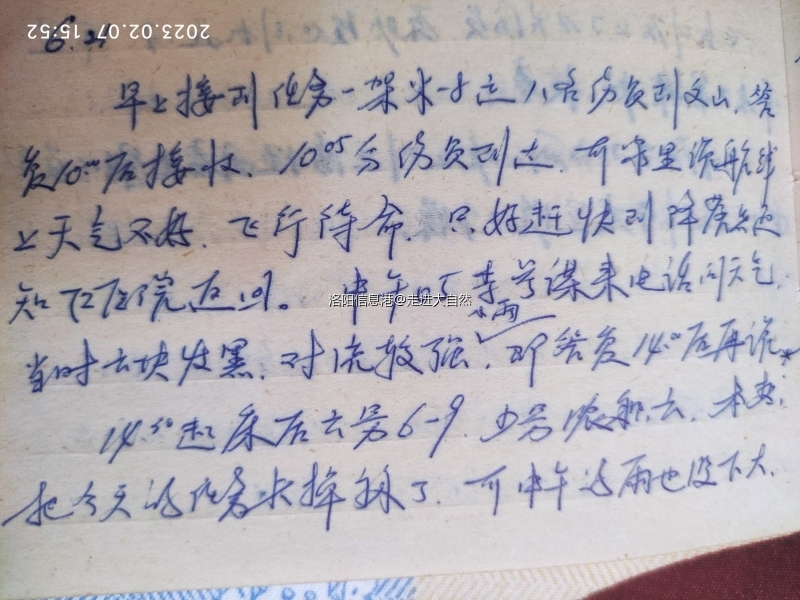 2023.02.07 15:52
6.21
早上接到任务一架米-8运八名伤员到文山,答
复10°°后接收,10⁰⁵分伤员到达,可家里说航线
上天气不好,飞行待命,只好赶快到降落点通
知医院返回。中午时李参谋来电话问天气,
洛阳信息港@走进大自然
小雨
当时云块发黑,对流较强,即答复14°°后再说。
14.³⁰起床后云量6-9,少量浓积云,本来,
把今天的任务米掉了,可中午这雨也没下大,